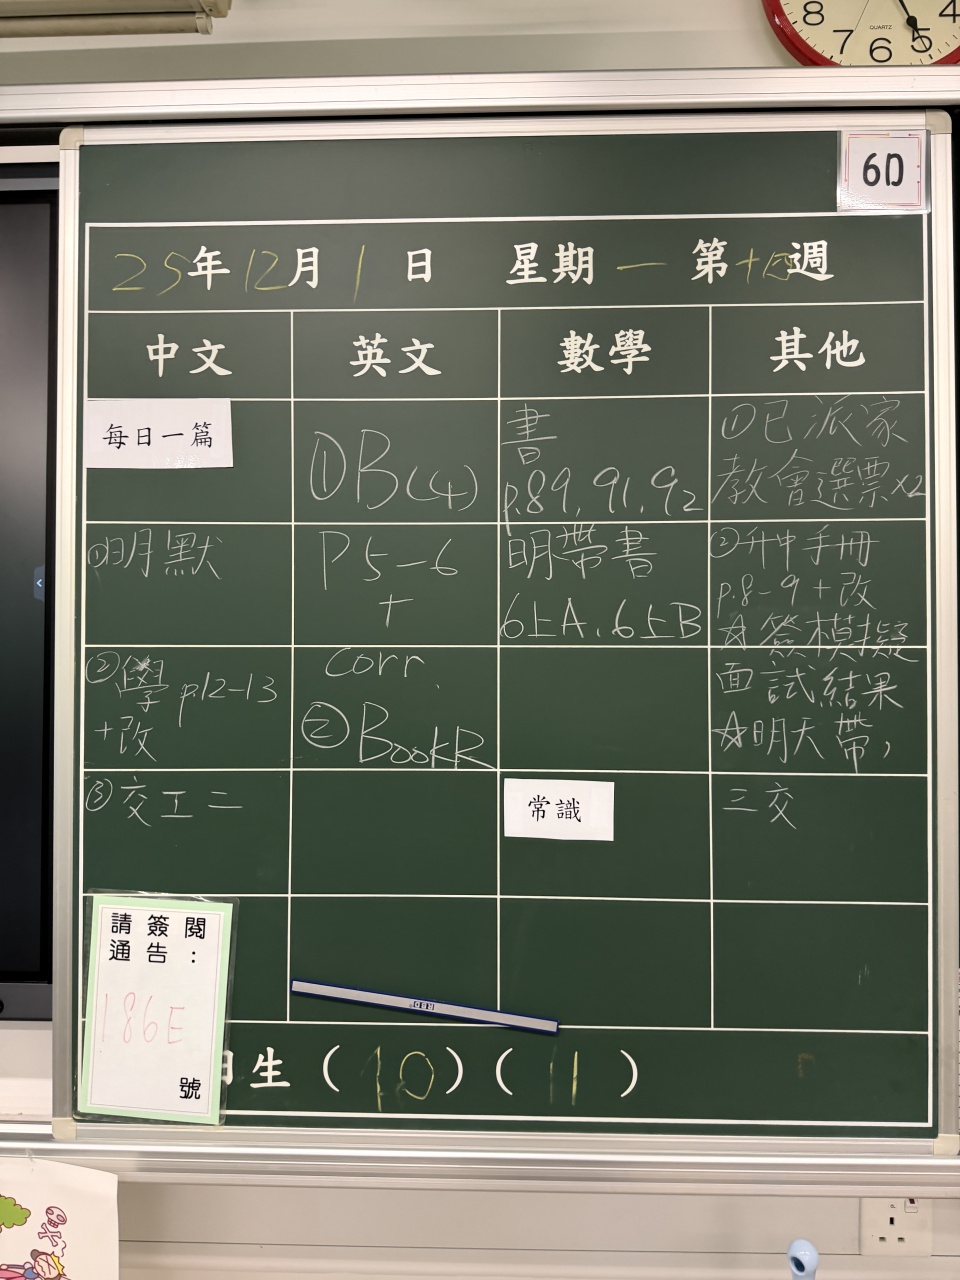 8 7 6 5 4
QUARTZ
6D
25年12月1日 星期一 第十四週
中文 英文 數學 其他
每日一篇
①明默
②學 p.12-13
+改
③交工二
①B(4)
P5-6
+
corr.
②BookR
書
p.89, 91, 92
明帶書
6上A、6上B
常識
①已派家
教會選票x2
②升中手冊
p.8-9+改
☆簽模擬
面試結果
☆明天帶,
三交
請簽閱
通告:
186E
號
生(10)(11)